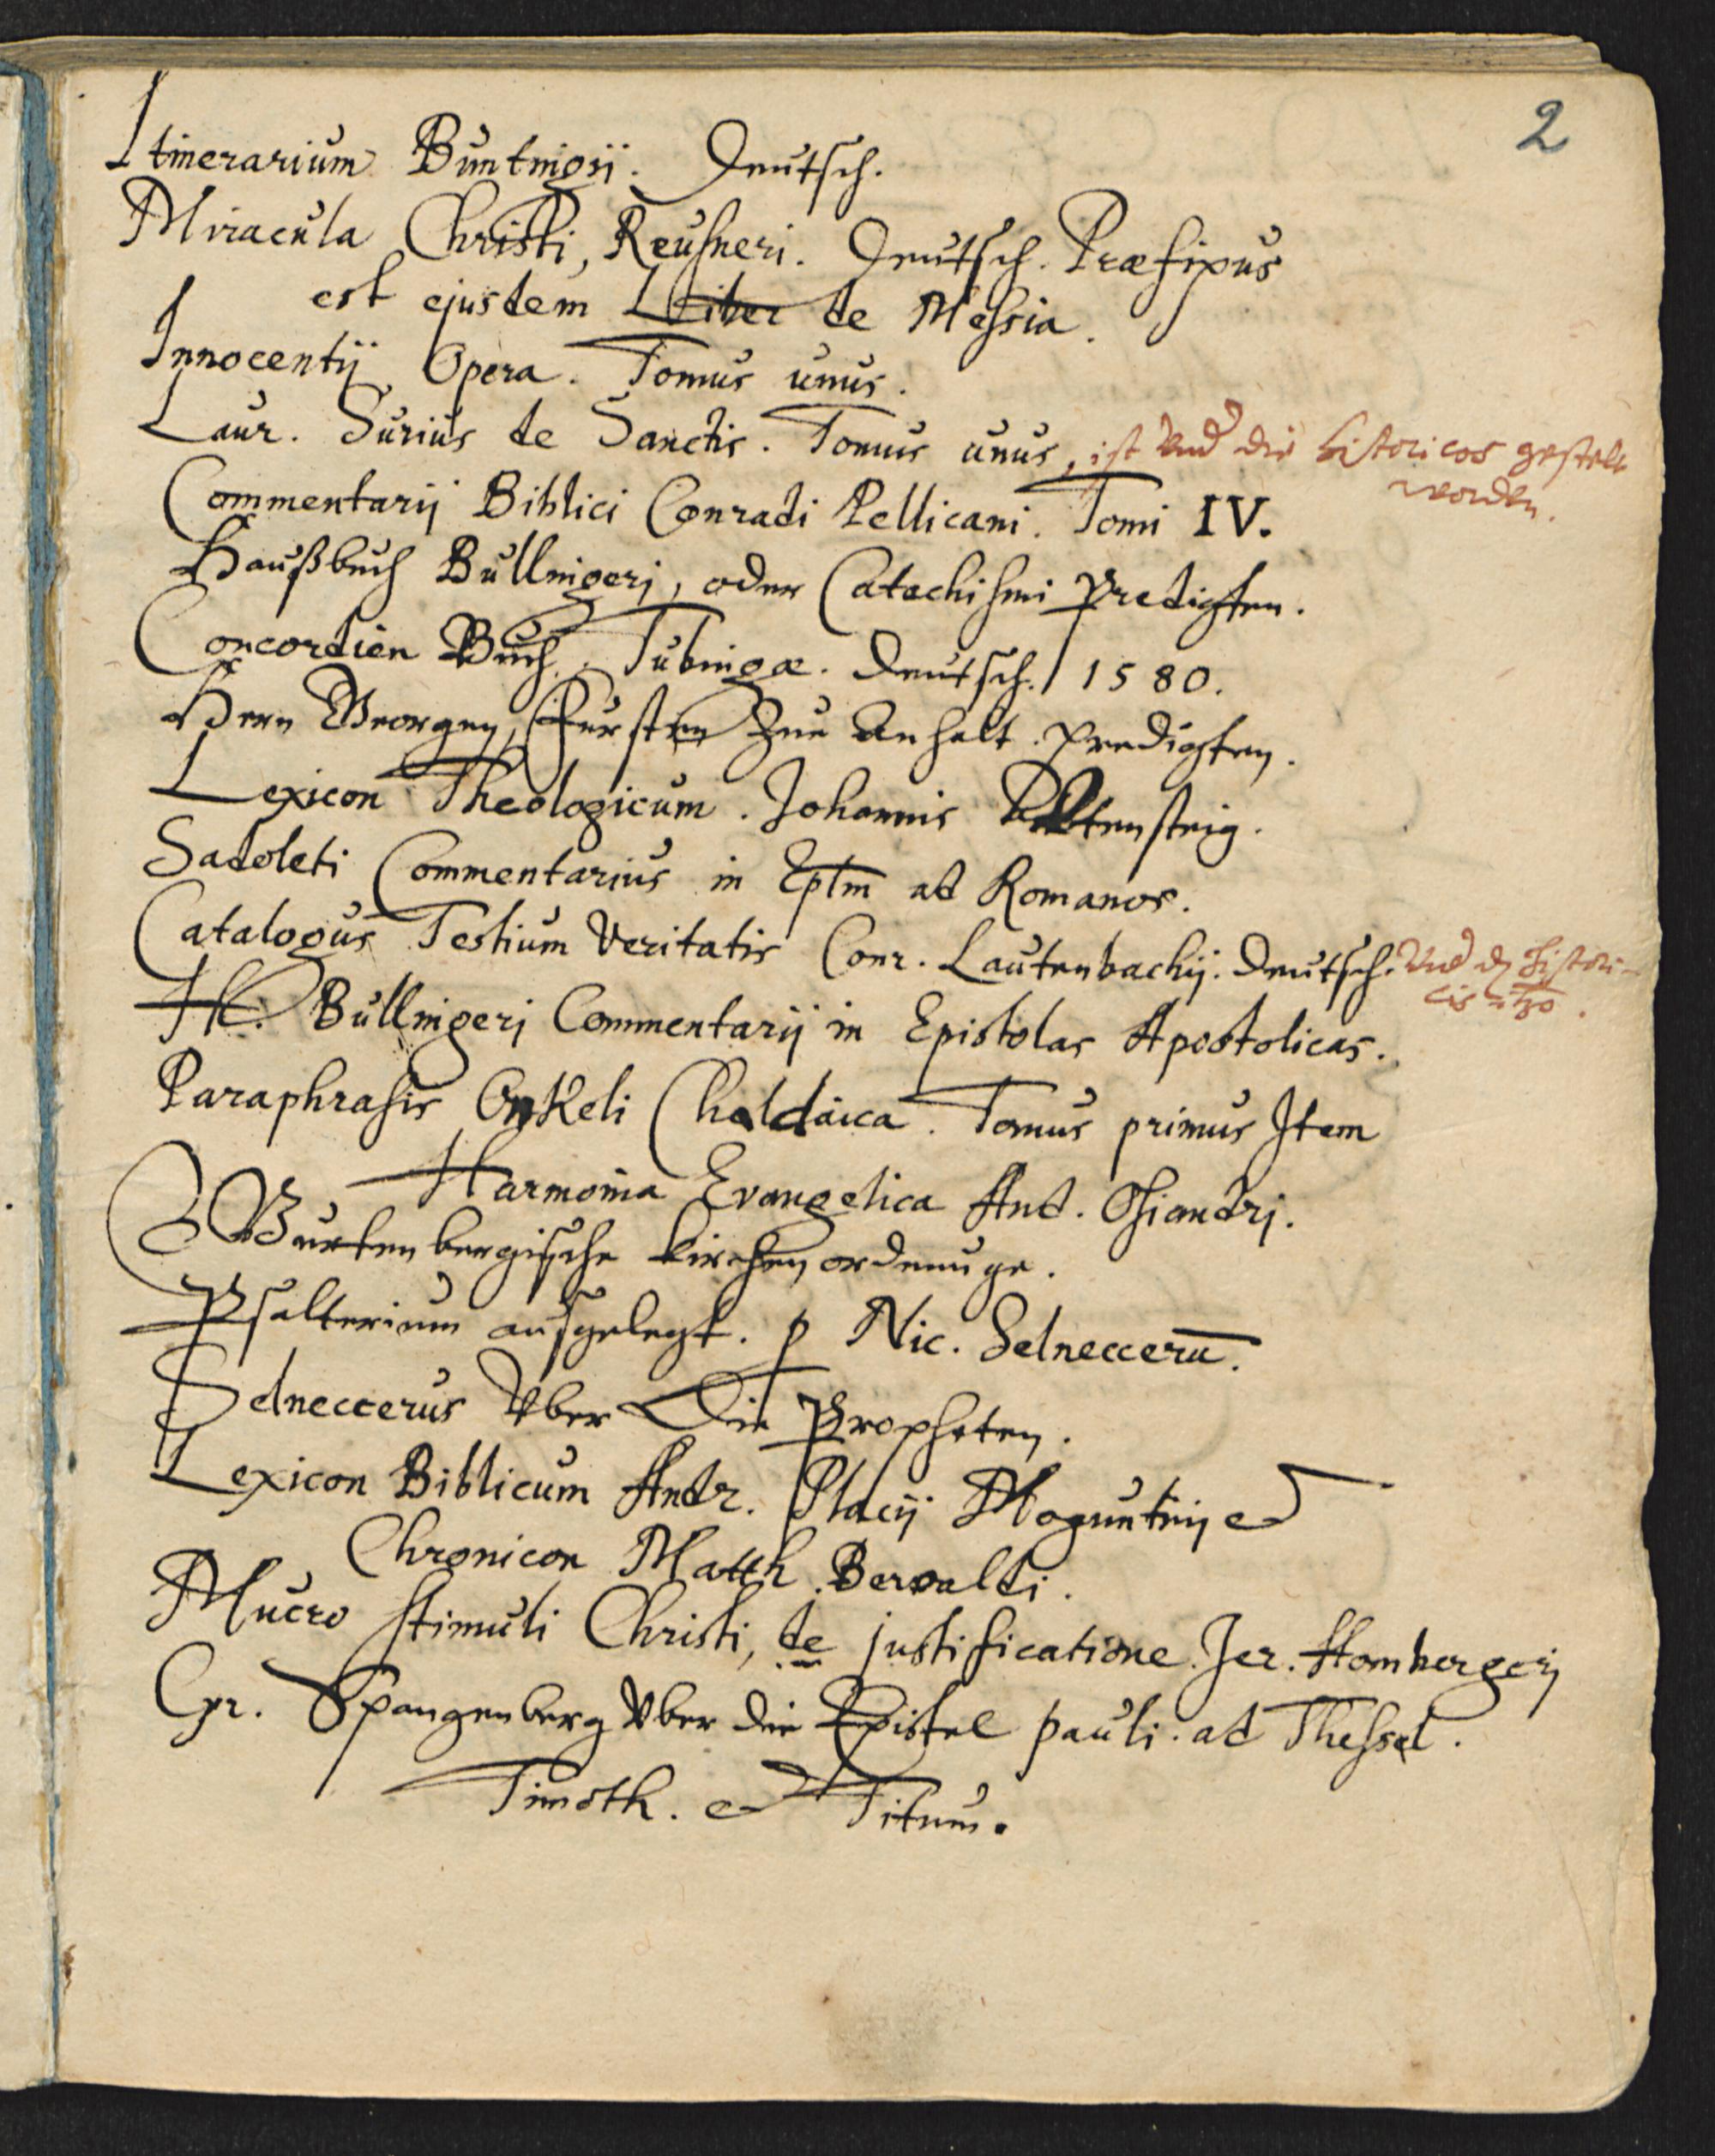 2
Itinerarium Buntingij. Deutsch.
Miracula Christi, Reusneri. Deutsch. Præfixus
est ejusdem Liber de Messia.
Innocentij Opera. Tomus unus.
Laur. Surius de Sanctis. Tomus unus, ist und die historicos gestelt
worden.
Commentarij Biblici Conradi Pellicani. Tomi IV.
Haußbuch Bullingeri, oder Catechismi Predigten.
Concordien Buch. Tubingæ. Deutsch. 1580.
Herrn Georgen, Fursten Zue Anhalt. Predigten.
Lexicon Theologicum. Johannis Altensteig.
Sadoleti Commentarius in Eplm ad Romanos.
Catalogus Testium Veritatis Conr. Lautenbachij. Deutsch. Und d. Histori-
cis
H. Bullingeri Commentarij in Epistolas Apostolicas.
Paraphrasis Onkeli Chaldaica. Tomus primus Item
Harmonia Evangelica And. Osiandri.
Wurtenbergische Kirchenordnunge.
Psalterium ausgelegt. p Nic. Selneccerū.
Selneccerus Vber Die Propheten.
Lexicon Biblicum Andr. Placij Moguntinj et
Chronicon Matth. Beroaldi.
Mucro stimuli Christi, de justificatione. Jer. Hombergerj
Cyr. Spangenberg Vber die Epistel Pauli. ad Thessal.
Timoth. et Titum.